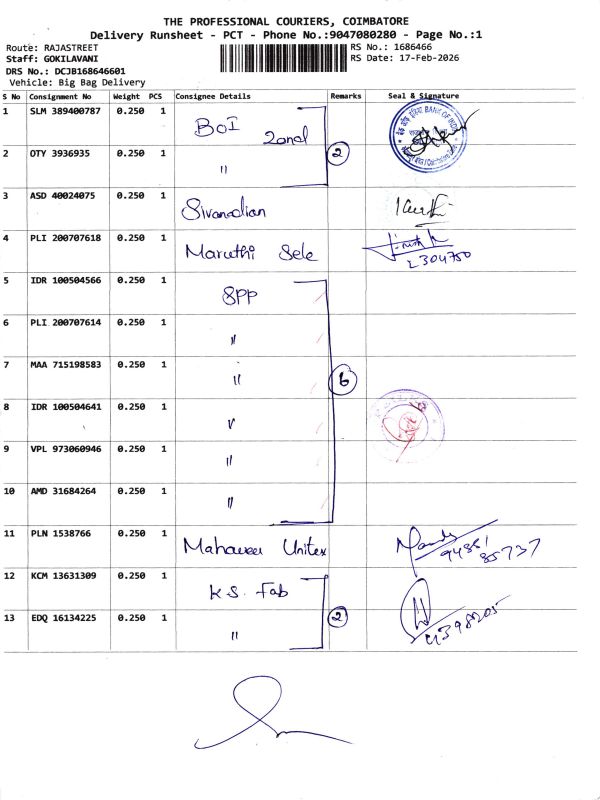 THE PROFESSIONAL COURIERS, COIMBATORE
Delivery Runsheet - PCT - Phone No.:9047080280 - Page No.:1
Route: RAJASTREET
Staff: GOKILAVANI
DRS No.: DCJB168646601
Vehicle: Big Bag Delivery
RS No.: 1686466
RS Date: 17-Feb-2026
S No Consignment No Weight PCS Consignee Details Remarks Seal & Signature
1 SLM 389400787 0.250 1 BOI Zonal
2 OTY 3936935 0.250 1 " 2
BANK OF INDIA
3 ASD 40024075 0.250 1
4 PLI 200707618 0.250 1 Maruthi Sele
2304750
5 IDR 100504566 0.250 1 SPP
6 PLI 200707614 0.250 1 "
7 MAA 715198583 0.250 1 " 6
8 IDR 100504641 0.250 1 "
9 VPL 973060946 0.250 1 "
10 AMD 31684264 0.250 1 "
11 PLN 1538766 0.250 1 Mahaveer Unitex
85737
12 KCM 13631309 0.250 1 K.S. Fab
13 EDQ 16134225 0.250 1 " 2